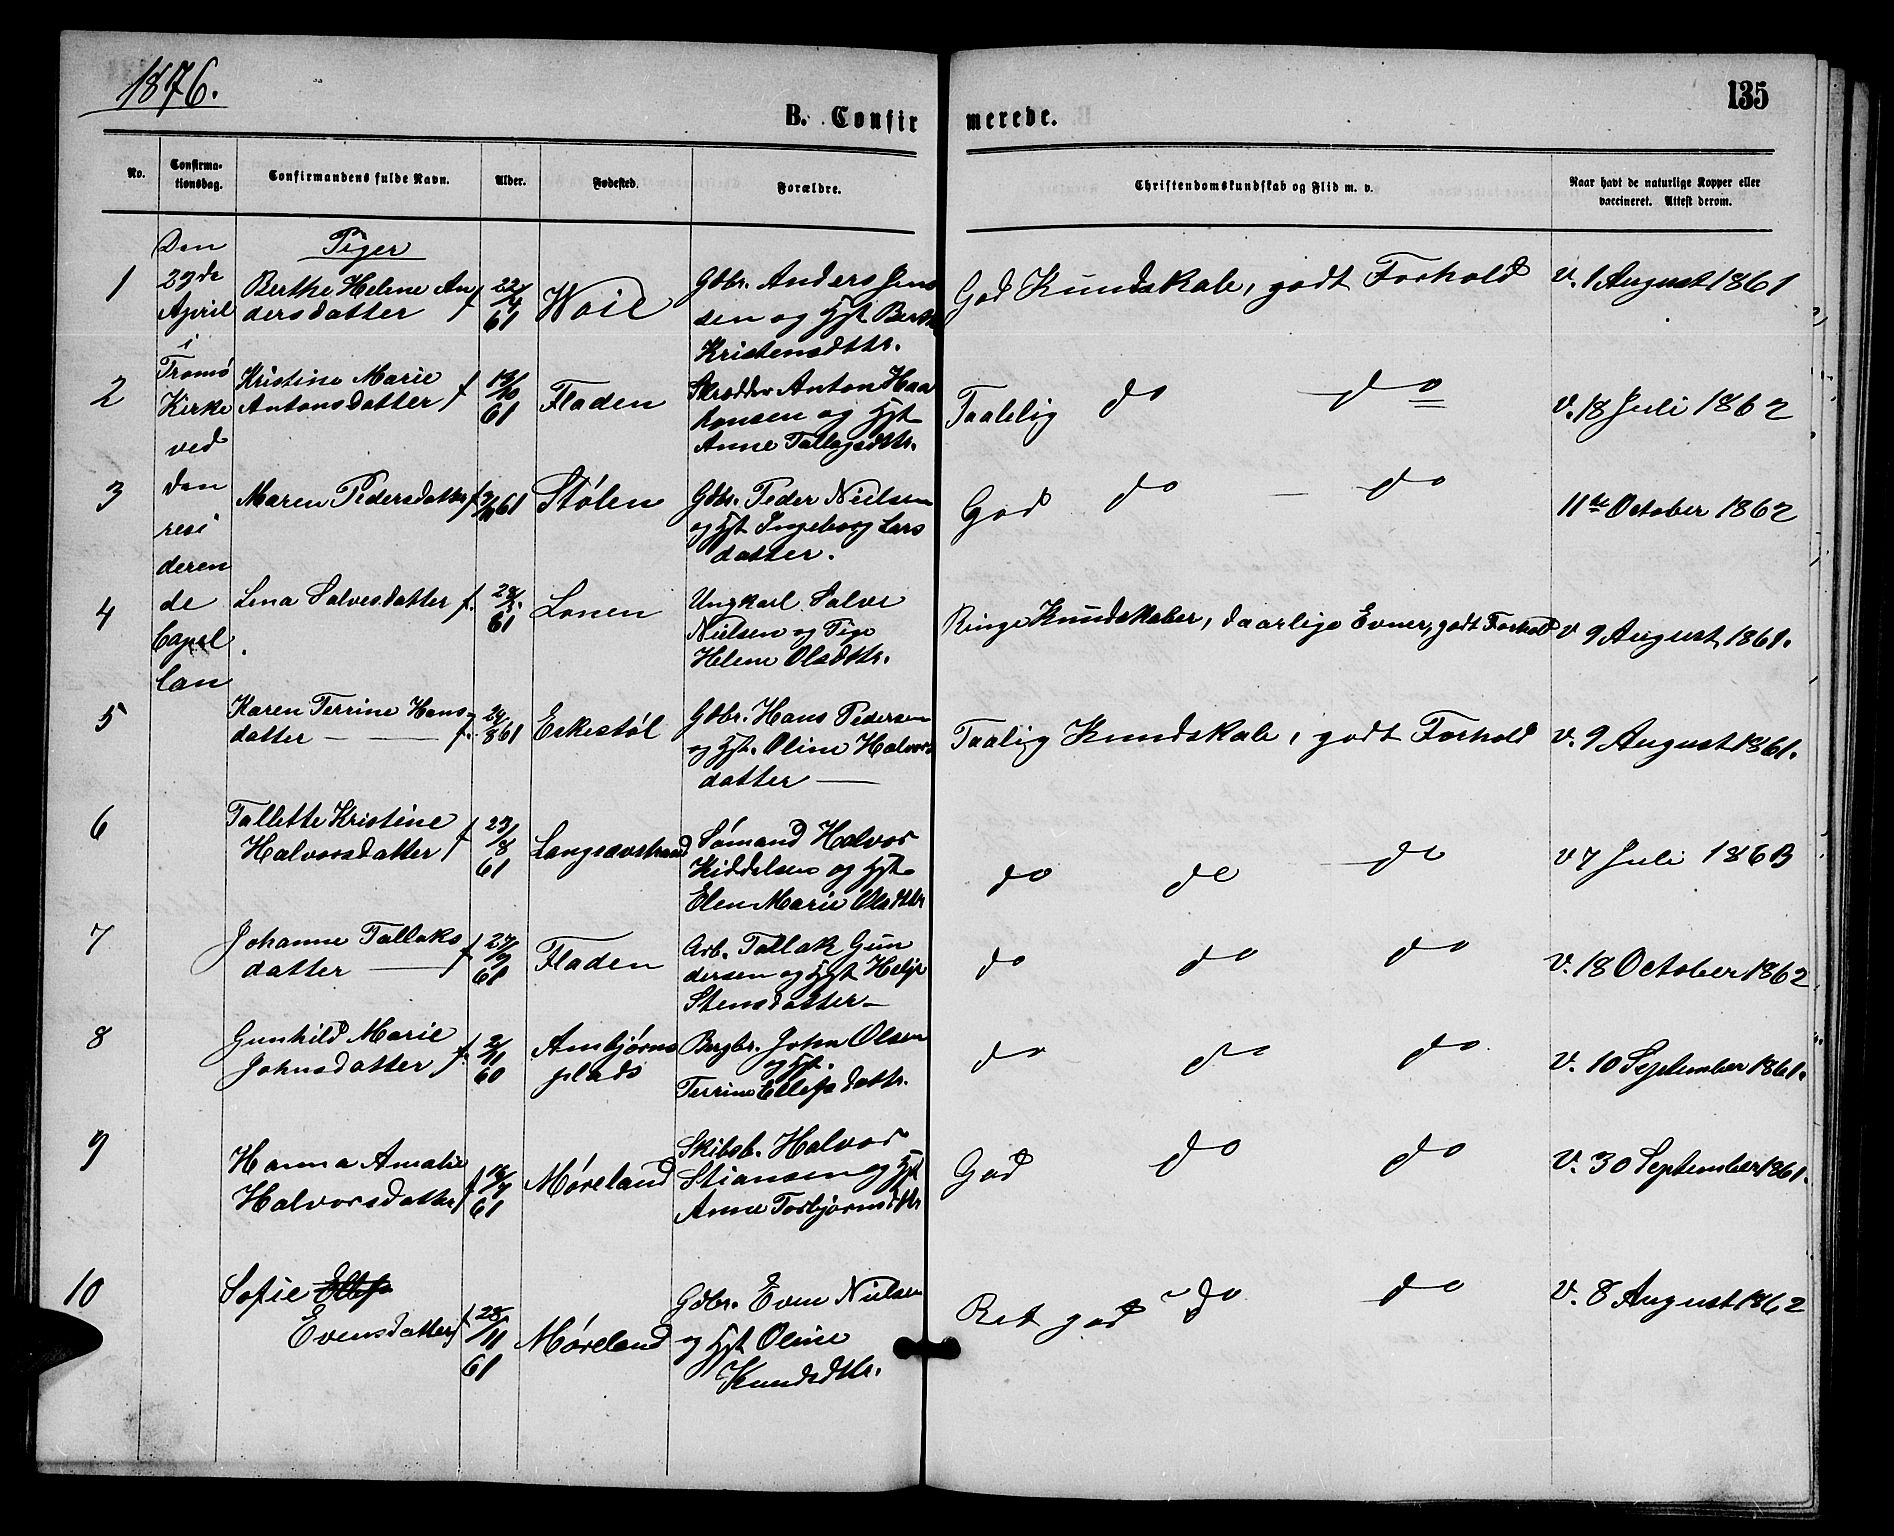 1876.
135
B. Confirmerede.
No. Confirmationsdag. Confirmandens fulde Navn. Alder. Fødested. Forældre. Christendomskundskab og Flid m. v. Naar havt de naturlige Kopper eller vaccineret. Attest derom.
Den
23de
April
i
Tromø
Kirke
ved
den
resi
deren
de
Capel
lan
Piger
1 Berthe Helene An
dersdatter f 22/4 61
Gdbr. Anders Jens
sen og Hst Berthe
Kristensdttr.
God Kundskab, godt Forhold
V. 1 August 1861
2 Kristine Marie
Antonsdatter f 61 Fladen
Skrædder Anton Haa
konsen og Hst
Anne Tallagsdttr.
Taalelig do do
V. 18 Juli 1862
3 Maren Pedersdatter f 61 Stølen
Gdbr. Peder Nielsen
og Hst Ingeborg Lars
datter.
God do — do
11te October 1862
4 Lena Salvesdatter f. 61 Lonen
Ungkarl Salve
Nielsen og Pige
Helene Olsdttr.
Ringe Kundskaber, daarlige Evner, godt Forhold
V 9 August 1861.
5 Karen Terrine Hans
datter — f. 24/8 61 Eskestøl
Gdbr. Hans Pedersen
og Hst. Oline Halvors
datter —
Taalig Kundskab, godt Forhold
V. 9 August 1861.
6 Tallette Kristine
Halvorsdatter f 23/8 61 Langsævstrand
Sømand Halvor
Kiddelsen og Hst
Elen Marie Olsdttr
do do do
V 7 Juli 1863
7 Johanne Tallaks
datter — f 27/9 61 Fladen
Arb. Tallak Gun
dersen og Hst Helje
Stensdatter —
do do do
V. 18 October 1862
8 Gunhild Marie
Johnsdatter f. 2/11 60 Ambjørns
plads
Bergbr. John Olsen
og Hst.
Terrine Ellefsdattr.
do do do
V. 10 September 1861.
9 Hanna Amalie
Halvorsdatter f 16/7 61 Møreland
Skibsb. Halvor
Stiansen og Hst
Anne Torbjørnsdttr
God do do
V. 30 September 1861.
10 Sofie Ellefs
Evensdatter f 28/11 61 Møreland
Gdbr. Even Nielsen
og Hst Oline
Knudsdttr.
Ret god do do
V. 8 August 1862